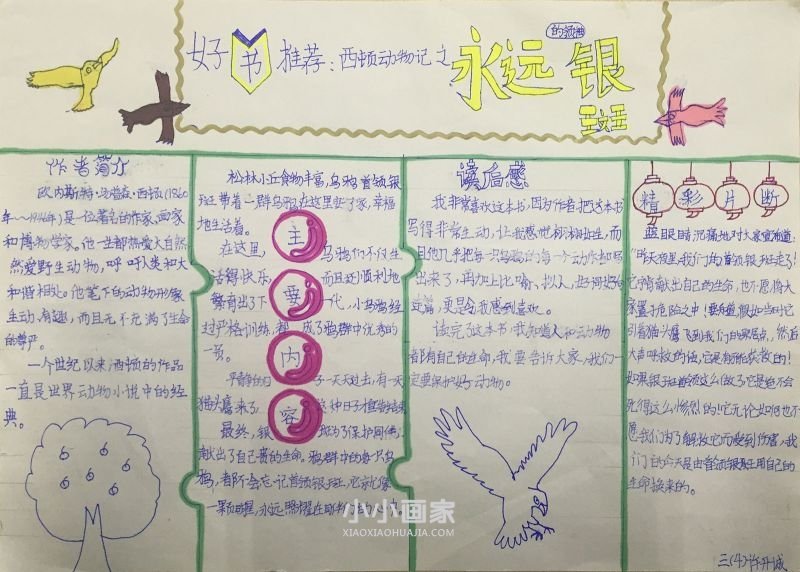 好书推荐：西顿动物记之永远的领袖银斑
作者简介
欧内斯特·马塔森·西顿(1860
年～1946年)是一位著名的作家、画家
和博物学家。他一生都热爱大自然
然爱野生动物，呼吁人类和大
和谐相处。他笔下的动物形象
生动有趣，而且无不充满了生命
的尊严。
一个世纪以来西顿的作品
一直是世界动物小说中的经
典。
主要内容
松林小丘食物丰富，乌鸦首领银
斑带着一群乌鸦在这里安了家，幸福
地生活着。
在这里，乌鸦们不仅生
活得快乐，而且还顺利地
繁育出了下一代，小乌鸦经
过严格训练，都成了鸦群中优秀的
一员。
子一天天过去，有一天
猫头鹰来了，这种日子才宣告结束
最终，银斑为了保护同伴，
献出了自己贵的生命。鸦群中的每一只乌
鸦，者都不会忘记首领银斑，它就像
一颗启明星，永远照耀在
读后感
我非常喜欢这本书，因为作者把这本书
写得非常生动，让我感觉栩栩如生，而
且他几乎把每一只乌鸦的每一个动作都写
出来了，再加上比喻、拟人、好词好句
更是令我感到喜欢。
读完了这本书，我知道人和动物
都有自己的生命，我要告诉大家，我们一
定要保护好动物。
精彩片断
蓝眼睛沉痛地对大家宣布道：
“昨天夜里，我们的首领银斑走了！
它宁肯献出自己的生命，也不愿将大
家置于危险之中！要知道，假如当时它
引着猫头鹰飞到我们的栖居点，然后
大声呼救的话，它是有可能获救的！
如果银斑首领这么做了，它是绝不会
死得这么惨烈的！它无论如何也不
愿我们为了解救它而受到伤害，我
们的今天是由首领银斑王用自己的
生命换来的。
三(4)许开诚
小小画家
XIAOXIAOHUAJIA.COM